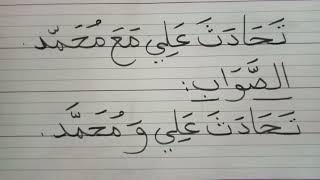 تَحَادَثَ عَلِي مَعَ مُحَمَّد.
الصَّوَاب:
تَحَادَثَ عَلِي وَ مُحَمَّد.